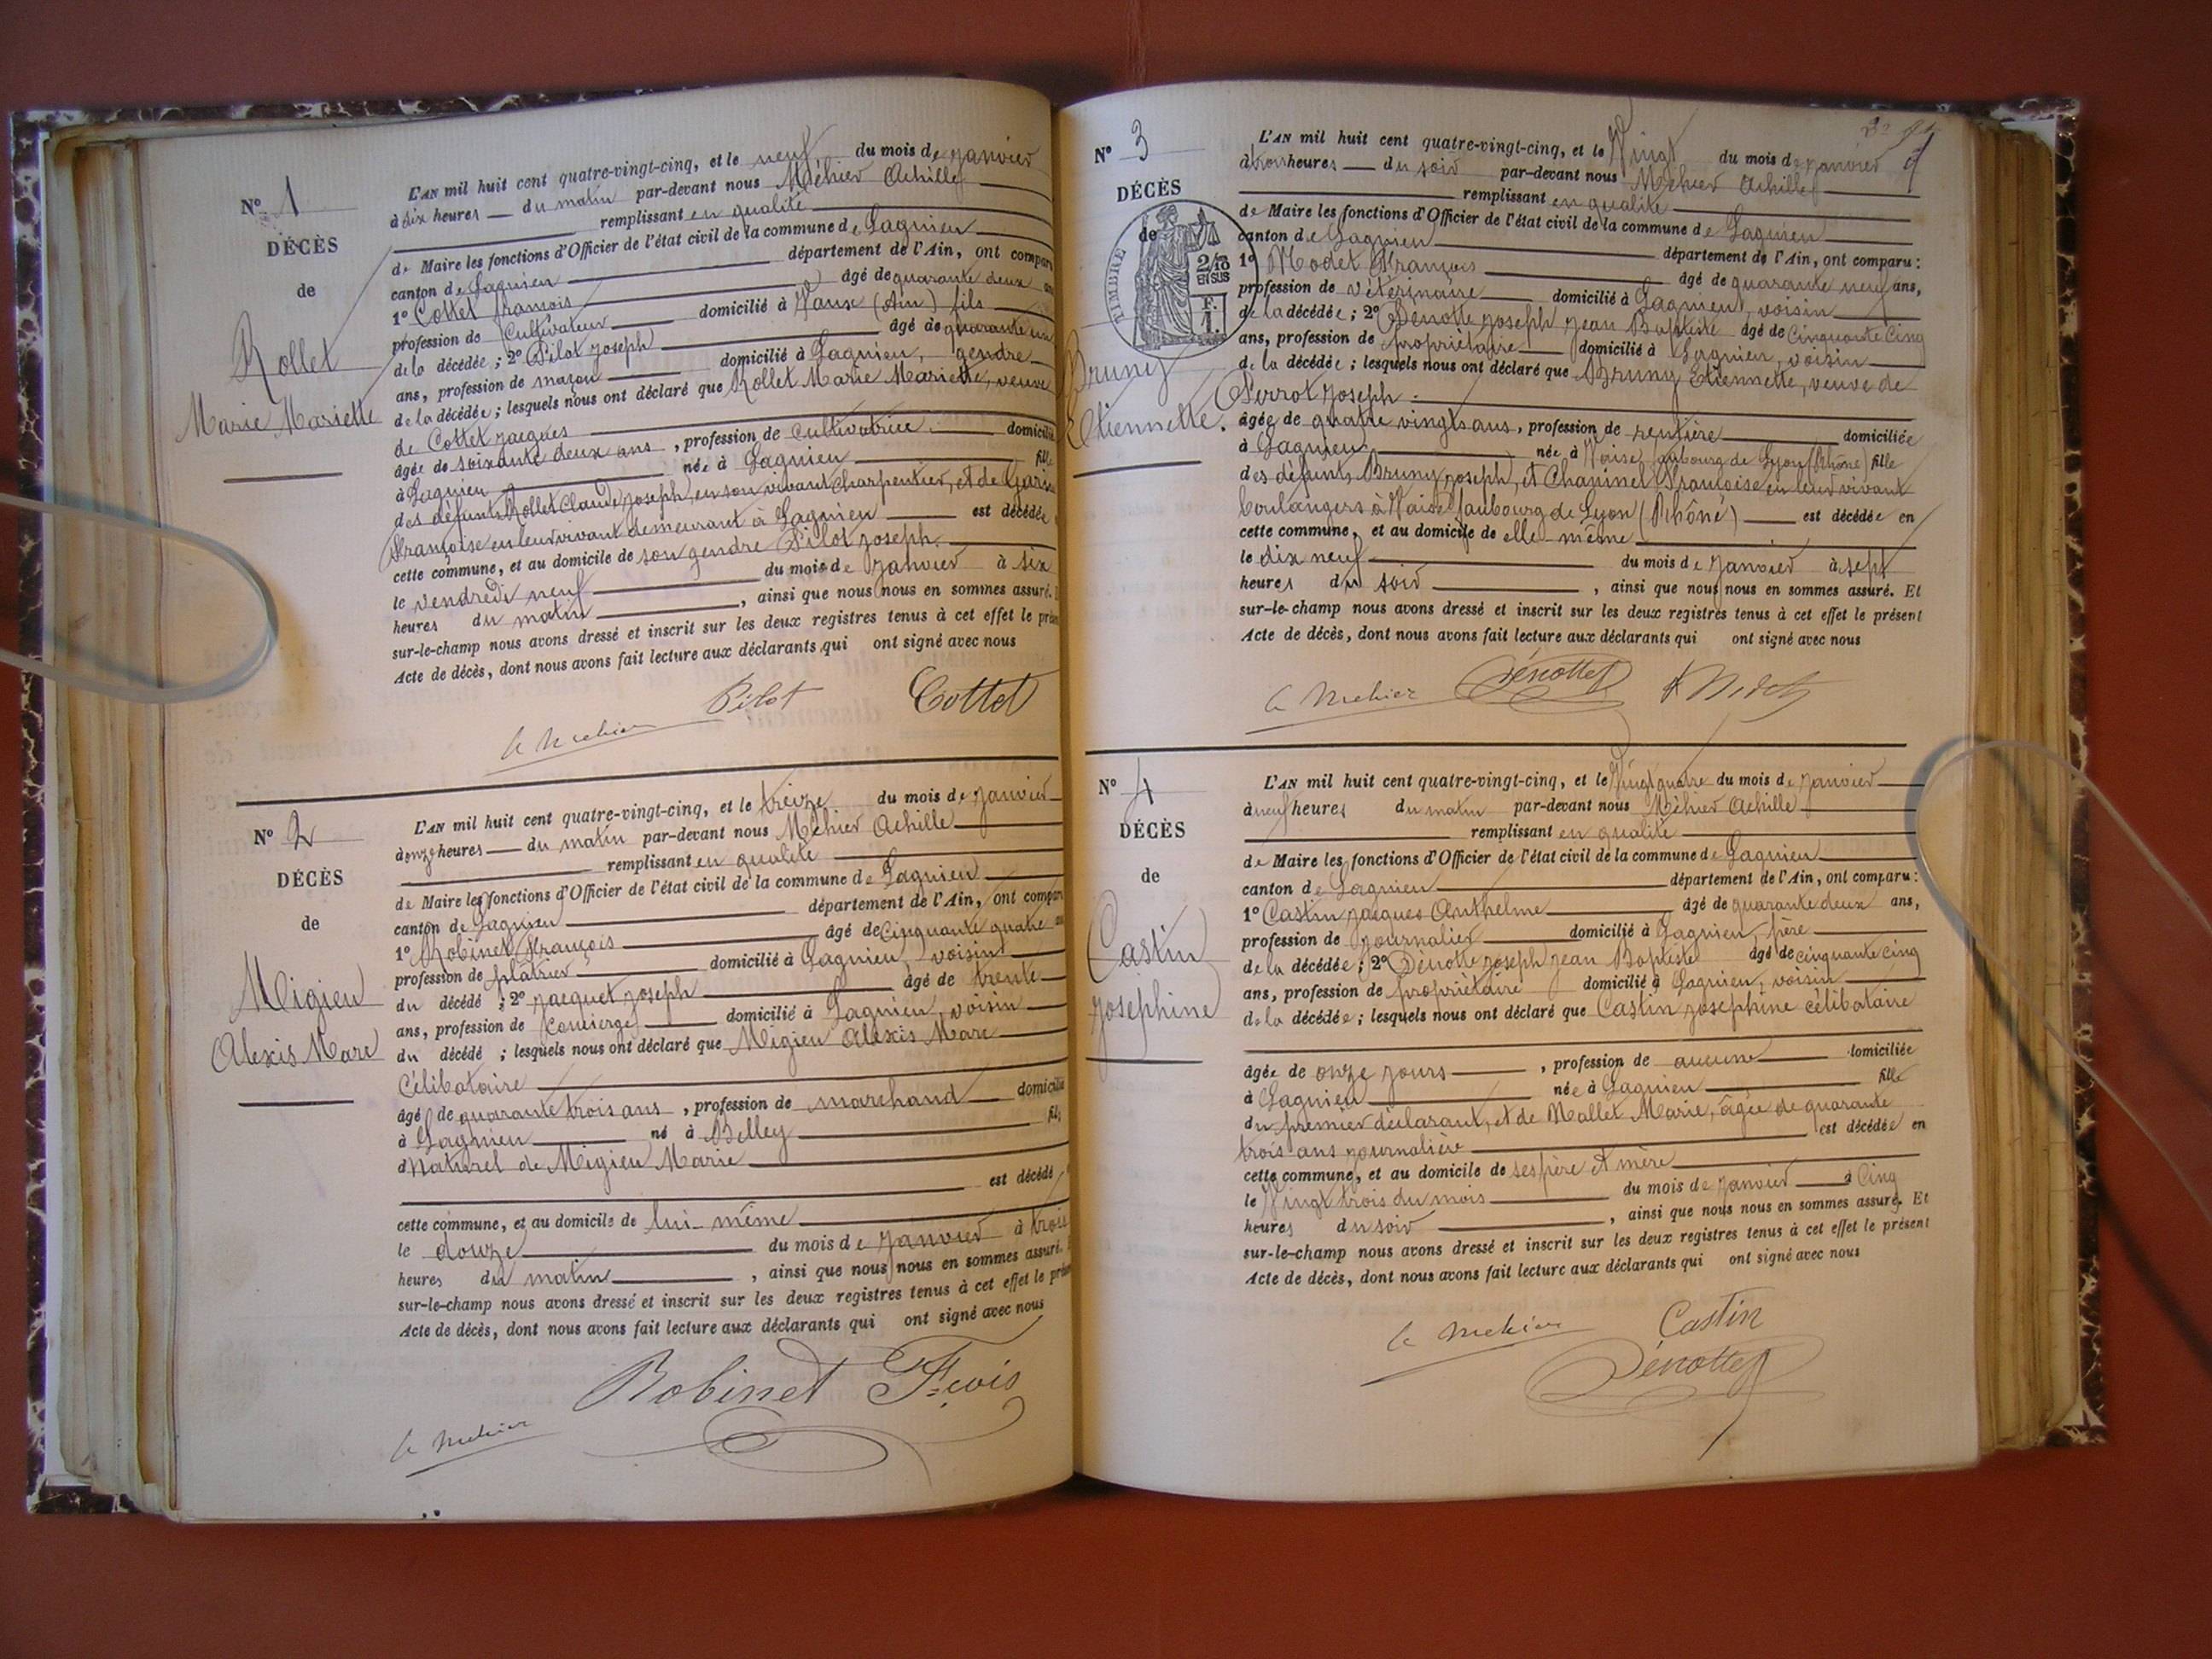 N° 1
DÉCÈS
de
Rollet
Marie Mariette
L'AN mil huit cent quatre-vingt-cinq, et le neuf du mois de janvier
à dix heures du matin par-devant nous Méhier Achille
remplissant en qualité
de Maire les fonctions d'Officier de l'état civil de la commune de Lagnieu
canton de Lagnieu département de l'Ain, ont comparu
1° Cottet françois âgé de quarante deux ans
profession de Cultivateur domicilié à Vaux (Ain) fils
de la décédée ; 2° Pilot Joseph âgé de quarante un
ans, profession de maçon domicilié à Lagnieu, gendre
de la décédée ; lesquels nous ont déclaré que Rollet Marie Mariette, veuve
de Cottet Jacques
âgée de soixante deux ans, profession de Cultivatrice domiciliée
à Lagnieu née à Lagnieu fille
des défunts Rollet Claude Joseph, en son vivant Charpentier, et de
Françoise en leur vivant demeurant à Lagnieu est décédée
cette commune, et au domicile de son gendre Pilot Joseph.
le vendredi neuf du mois de Janvier à six
heures du matin, ainsi que nous nous en sommes assuré.
sur-le-champ nous avons dressé et inscrit sur les deux registres tenus à cet effet le
Acte de décès, dont nous avons fait lecture aux déclarants qui ont signé avec nous
Pilot Cottet
A Mehier
N° 2
DÉCÈS
de
Migieu
Alexis Marc
L'AN mil huit cent quatre-vingt-cinq, et le treize du mois de Janvier
à onze heures du matin par-devant nous Méhier Achille
remplissant en qualité
de Maire les fonctions d'Officier de l'état civil de la commune de Lagnieu
canton de Lagnieu département de l'Ain, ont comparu
1° Robinet François âgé de Cinquante quatre
profession de plâtrier domicilié à Lagnieu, voisin
du décédé ; 2° Jacquet Joseph âgé de trente
ans, profession de Concierge domicilié à Lagnieu, voisin
du décédé ; lesquels nous ont déclaré que Migieu Alexis Marc
Célibataire
âgé de quarante trois ans, profession de marchand domicilié
à Lagnieu né à Belley fils
naturel de Migieu Marie
est décédé
cette commune, et au domicile de lui-même
le douze du mois de Janvier à trois
heures du matin, ainsi que nous nous en sommes assuré.
sur-le-champ nous avons dressé et inscrit sur les deux registres tenus à cet effet le
Acte de décès, dont nous avons fait lecture aux déclarants qui ont signé avec nous
Robinet F=çois
A Mehier
N° 3
DÉCÈS
de
TIMBRE
2/10
EN SUS
F.
1.
Bruny
Etiennette.
L'AN mil huit cent quatre-vingt-cinq, et le Vingt du mois de janvier
à trois heures du soir par-devant nous Méhier Achille
remplissant en qualité
de Maire les fonctions d'Officier de l'état civil de la commune de Lagnieu
canton de Lagnieu département de l'Ain, ont comparu :
1° Modet François âgé de quarante neuf ans,
profession de vétérinaire domicilié à Lagnieu, voisin
de la décédée ; 2° Dénotte Joseph Jean Baptiste âgé de Cinquante Cinq
ans, profession de propriétaire domicilié à Lagnieu, voisin
de la décédée ; lesquels nous ont déclaré que Bruny Etiennette, veuve de
Perrot Joseph
âgée de quatre vingts ans, profession de rentière domiciliée
à Lagnieu née à Vaise faubourg de Lyon (Rhône) fille
des défunts Bruny Joseph, et Chapinel Françoise en leur vivant
boulangers à Vaise faubourg de Lyon (Rhône) est décédée en
cette commune, et au domicile de elle-même
le dix neuf du mois de Janvier à sept
heures du soir, ainsi que nous nous en sommes assuré. Et
sur-le-champ nous avons dressé et inscrit sur les deux registres tenus à cet effet le présent
Acte de décès, dont nous avons fait lecture aux déclarants qui ont signé avec nous
A Mehier Dénotte
N° 4
DÉCÈS
de
Castin
Joséphine
L'AN mil huit cent quatre-vingt-cinq, et le Vingt quatre du mois de Janvier
à neuf heures du matin par-devant nous Méhier Achille
remplissant en qualité
de Maire les fonctions d'Officier de l'état civil de la commune de Lagnieu
canton de Lagnieu département de l'Ain, ont comparu :
1° Castin Jacques Anthelme âgé de quarante deux ans,
profession de Journalier domicilié à Lagnieu, père
de la décédée ; 2° Dénotte Joseph Jean Baptiste âgé de cinquante cinq
ans, profession de propriétaire domicilié à Lagnieu, voisin
de la décédée ; lesquels nous ont déclaré que Castin Joséphine célibataire
âgée de onze jours, profession de aucune domiciliée
à Lagnieu née à Lagnieu fille
du premier déclarant, et de Mallet Marie, âgée de quarante
trois ans journalière est décédée en
cette commune, et au domicile de ses père et mère
le Vingt trois du mois du mois de Janvier à Cinq
heures du soir, ainsi que nous nous en sommes assuré. Et
sur-le-champ nous avons dressé et inscrit sur les deux registres tenus à cet effet le présent
Acte de décès, dont nous avons fait lecture aux déclarants qui ont signé avec nous
A Mehier Castin
Dénotte